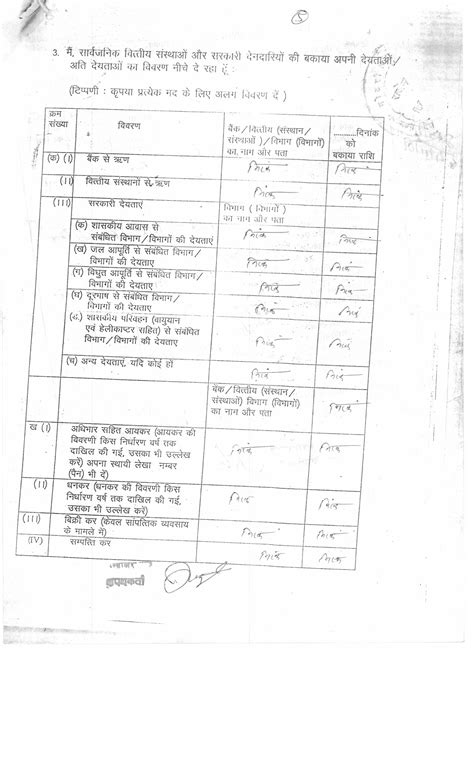 3. मैं, सार्वजनिक वित्तीय संस्थाओं और सरकारी देनदारियों की बकाया अपनी देयताओं/
अति देयताओं का विवरण नीचे दे रहा हूँ :
(टिप्पणी : कृपया प्रत्येक मद के लिए अलग विवरण दें )
क्रम संख्या
विवरण
बैंक/वित्तीय (संस्थान/
संस्थाओं )/विभाग (विभागों)
का नाम और पता
............दिनांक
को
बकाया राशि
(क) (I) बैंक से ऋण निल निल
(II) वित्तीय संस्थानों से ऋण निल निल
(III) सरकारी देयताएं
विभाग ( विभागों )
का नाम और पता
(क) शासकीय आवास से
संबंधित विभाग/विभागों की देयताएं निल निल
(ख) जल आपूर्ति से संबंधित विभाग/
विभागों की देयताएं निल निल
(ग) विधुत आपूर्ति से संबंधित विभाग/
विभागों की देयताएं निल निल
(घ) दूरभाष से संबंधित विभाग/
विभागों की देयताएं निल निल
शासकीय परिवहन (वायुयान
एवं हेलीकाप्टर सहित) से संबंधित
विभाग/विभागों की देयताएं निल निल
(च) अन्य देयताएं, यदि कोई हों निल निल
बैंक/वित्तीय (संस्थान/
संस्थाओं) विभाग (विभागों)
का नाम और पता निल
ख (I) अधिभार सहित आयकर (आयकर की
विवरणी किस निर्धारण वर्ष तक
दाखिल की गई, उसका भी उल्लेख
करें) अपना स्थायी लेखा नम्बर
(पैन) भी दें) निल निल
(II) धनकर (धनकर की विवरणी किस
निर्धारण वर्ष तक दाखिल की गई,
उसका भी उल्लेख करें) निल निल
(III) बिक्री कर (केवल सांपत्तिक व्यवसाय
के मामले में) निल निल
(IV) सम्पत्ति कर निल निल
शपथकर्ता